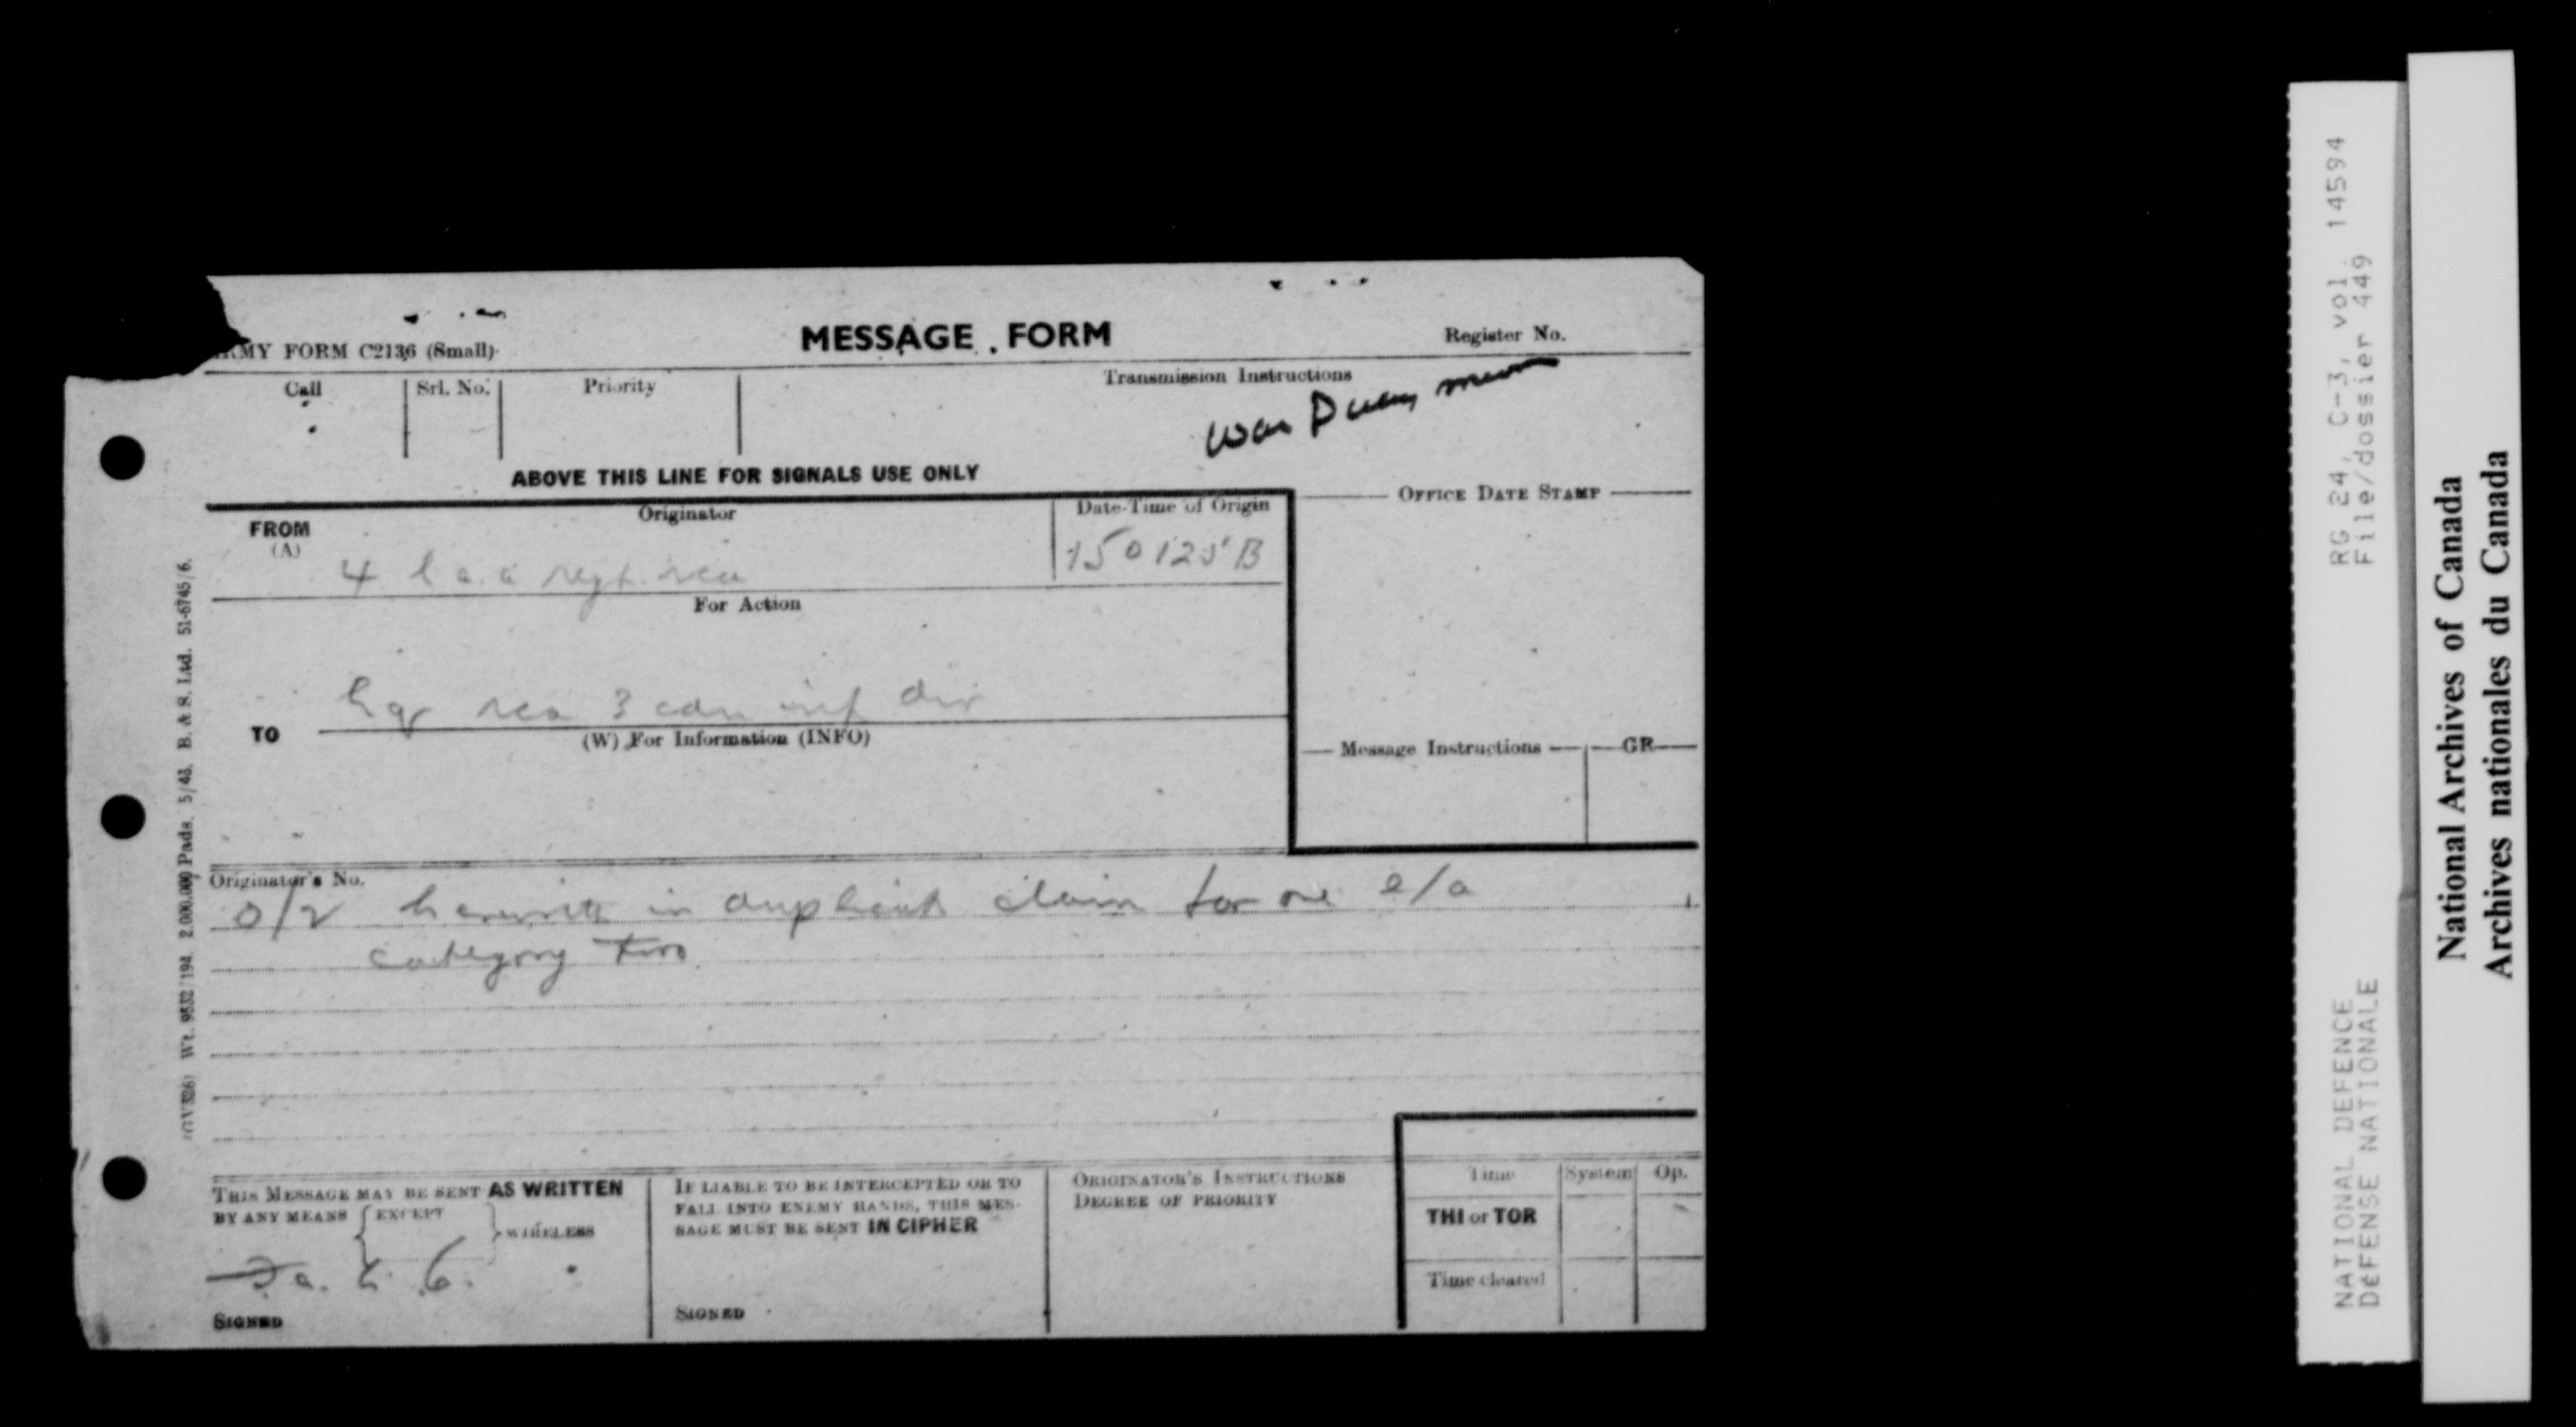 ARMY FORM C2136 (Small)
MESSAGE FORM
Register No.
Call
Srl. No.
Priority
Transmission Instructions
War Diary
ABOVE THIS LINE FOR SIGNALS USE ONLY
FROM
(A)
Originator
Date-Time of Origin
OFFICE DATE STAMP
4 l a a regt. rca
150125B
For Action
TO
hq rca 3 cdn inf div
(W) For Information (INFO)
Message Instructions
GR
Originator's No.
o/2 herewith in duplicate claim for one e/a
category two
THIS MESSAGE MAY BE SENT AS WRITTEN
BY ANY MEANS { EXCEPT } WIRELESS
SIGNED
IF LIABLE TO BE INTERCEPTED OR TO
FALL INTO ENEMY HANDS, THIS MES-
SAGE MUST BE SENT IN CIPHER
SIGNED
ORIGINATOR'S INSTRUCTIONS
DEGREE OF PRIORITY
Time
System
Op.
THI or TOR
Time cleared
Wt. 9532/194. 2,000,000 Pads. 5/43. B. & S. Ltd. 51-6745/6.
RG 24, C-3, vol. 14594
File/dossier 449
NATIONAL DEFENCE
DÉFENSE NATIONALE
National Archives of Canada
Archives nationales du Canada